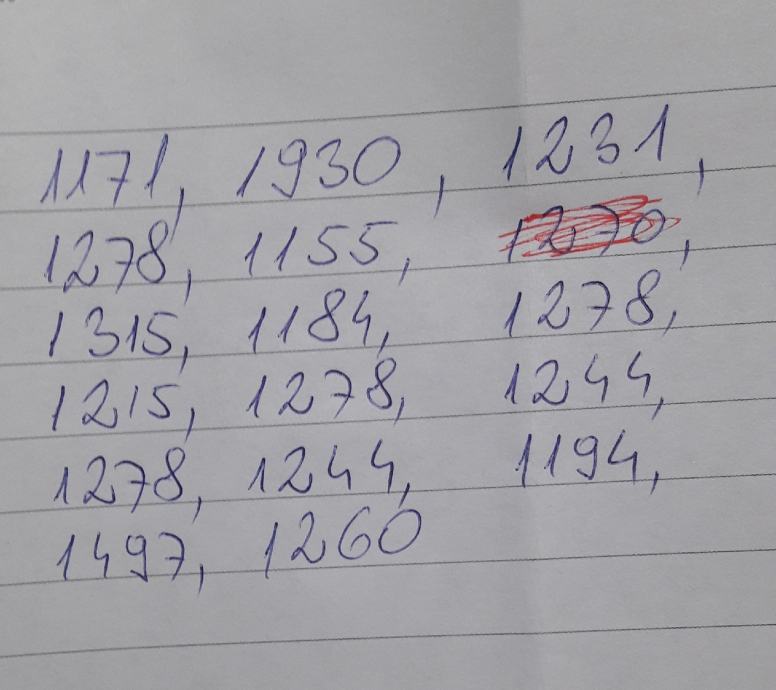 1171, 1930, 1231,
1278, 1155, 1270,
1315, 1184, 1278,
1215, 1278, 1244,
1278, 1244, 1194,
1497, 1260